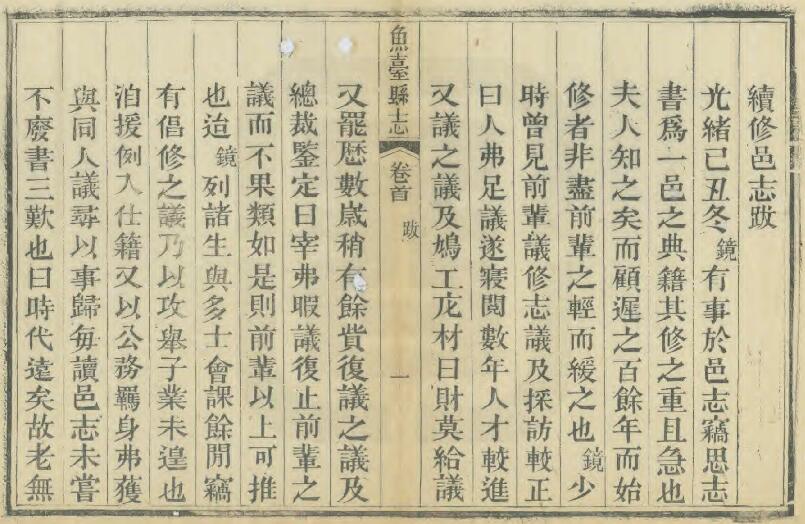 續修邑志跋
光緒己丑冬鏡有事於邑志竊思志
書爲一邑之典籍其修之重且急也
夫人知之矣而顧遲之百餘年而始
修者非盡前輩之輕而緩之也鏡少
時曾見前輩議修志議及採訪較正
曰人弗足議遂寢閱數年人才較進
又議之議及鳩工庀材曰財莫給議
魚臺縣志 卷首 跋 一
又罷歷數歲稍有餘貲復議之議及
總裁鑒定曰宰弗暇議復止前輩之
議而不果類如是則前輩以上可推
也迨鏡列諸生與多士會課餘閒竊
有倡修之議乃以攻舉子業未遑也
洎援例入仕籍又以公務羈身弗獲
與同人議尋以事歸每讀邑志未嘗
不廢書三歎也曰時代遠矣故老無